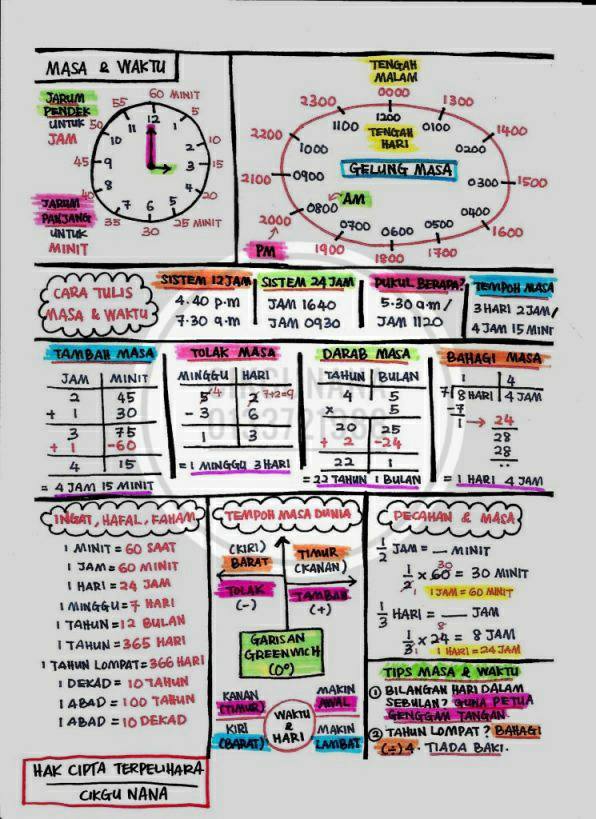 MASA & WAKTU
JARUM
PENDEK
UNTUK
JAM
JARUM
PANJANG
UNTUK
MINIT
60 MINIT
5
10
15
20
25 MINIT
30
35
40
45
50
55
12
1
2
3
4
5
6
7
8
9
10
11
TENGAH
MALAM
0000
1300
1400
1500
1600
1700
1800
1900
2000
2100
2200
2300
1200
TENGAH
HARI
0100
0200
0300
0400
0500
0600
0700
0800
0900
1000
1100
GELUNG MASA
AM
PM
CARA TULIS
MASA & WAKTU
SISTEM 12 JAM
4.40 p.m
7.30 a.m
SISTEM 24 JAM
JAM 1640
JAM 0930
PUKUL BERAPA?
5.30 a.m/
JAM 1120
TEMPOH MASA
3 HARI 2 JAM/
4 JAM 15 MINT
TAMBAH MASA
JAM MINIT
2 45
+ 1 30
3 75
+ 1 -60
4 15
= 4 JAM 15 MINIT
TOLAK MASA
MINGGU HARI
5 4 2 7+2=9
- 3 6
1 3
= 1 MINGGU 3 HARI
DARAB MASA
TAHUN BULAN
4 5
x 5
20 25
+ 2 -24
22 1
= 22 TAHUN 1 BULAN
BAHAGI MASA
1 4
7 8 HARI 4 JAM
-7
1 → 24
28
28
= 1 HARI 4 JAM
CIKGU NANA
INGAT, HAFAL, FAHAM
1 MINIT = 60 SAAT
1 JAM = 60 MINIT
1 HARI = 24 JAM
1 MINGGU = 7 HARI
1 TAHUN = 12 BULAN
1 TAHUN = 365 HARI
1 TAHUN LOMPAT = 366 HARI
1 DEKAD = 10 TAHUN
1 ABAD = 100 TAHUN
1 ABAD = 10 DEKAD
TEMPOH MASA DUNIA
(KIRI)
BARAT
TIMUR
(KANAN)
TOLAK
(-)
TAMBAH
(+)
GARISAN
GREENWICH
(0°)
KANAN
(TIMUR)
MAKIN
AWAL
WAKTU
&
HARI
KIRI
(BARAT)
MAKIN
LAMBAT
PECAHAN & MASA
1/2 JAM = __ MINIT
1/2 x 60 30 = 30 MINIT
1
1 JAM = 60 MINIT
1/3 HARI = __ JAM
1/3 x 24 8 = 8 JAM
1
1 HARI = 24 JAM
TIPS MASA & WAKTU
① BILANGAN HARI DALAM
SEBULAN? GUNA PETUA
GENGGAM TANGAN
② TAHUN LOMPAT? BAHAGI
(÷) 4. TIADA BAKI.
HAK CIPTA TERPELIHARA
CIKGU NANA